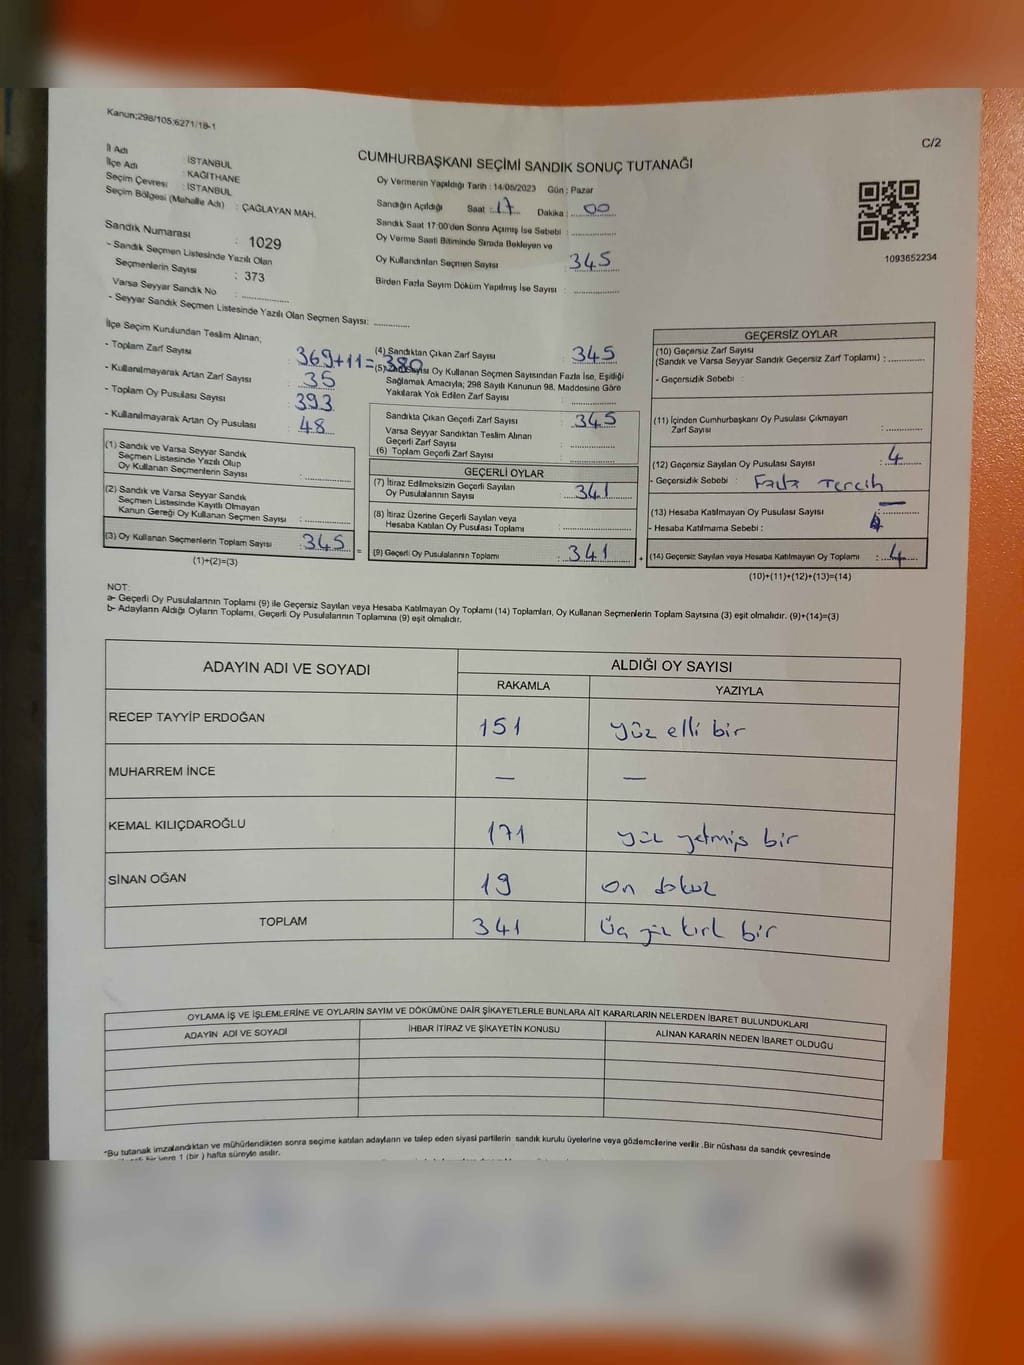 Kanun;298/105;6271/18-1
C/2
İl Adı : İSTANBUL
İlçe Adı : KAĞITHANE
Seçim Çevresi : İSTANBUL
Seçim Bölgesi (Mahalle Adı) : ÇAĞLAYAN MAH.
Sandık Numarası : 1029
- Sandık Seçmen Listesinde Yazılı Olan
Seçmenlerin Sayısı : 373
Varsa Seyyar Sandık No :
- Seyyar Sandık Seçmen Listesinde Yazılı Olan Seçmen Sayısı:
CUMHURBAŞKANI SEÇİMİ SANDIK SONUÇ TUTANAĞI
Oy Vermenin Yapıldığı Tarih : 14/05/2023 Gün : Pazar
Sandığın Açıldığı Saat : 17 Dakika : 00
Sandık Saat 17:00'den Sonra Açımış İse Sebebi :
Oy Verme Saati Bitiminde Sırada Bekleyen ve
Oy Kullandırılan Seçmen Sayısı : 345
Birden Fazla Sayım Döküm Yapılmış İse Sayısı :
1093652234
İlçe Seçim Kurulundan Teslim Alınan;
- Toplam Zarf Sayısı : 369+11=380
- Kullanılmayarak Artan Zarf Sayısı : 35
- Toplam Oy Pusulası Sayısı : 393
- Kullanılmayarak Artan Oy Pusulası : 48
(1) Sandık ve Varsa Seyyar Sandık
Seçmen Listesinde Yazılı Olup
Oy Kullanan Seçmenlerin Sayısı :
(2) Sandık ve Varsa Seyyar Sandık
Seçmen Listesinde Kayıtlı Olmayan
Kanun Gereği Oy Kullanan Seçmen Sayısı :
(3) Oy Kullanan Seçmenlerin Toplam Sayısı : 345 =
(1)+(2)=(3)
(4) Sandıktan Çıkan Zarf Sayısı : 345
Oy Kullanan Seçmen Sayısından Fazla İse, Eşitliği
Sağlamak Amacıyla; 298 Sayılı Kanunun 98. Maddesine Göre
Yakılarak Yok Edilen Zarf Sayısı :
Sandıkta Çıkan Geçerli Zarf Sayısı : 345
Varsa Seyyar Sandıktan Teslim Alınan
Geçerli Zarf Sayısı :
(6) Toplam Geçerli Zarf Sayısı :
GEÇERLİ OYLAR
(7) İtiraz Edilmeksizin Geçerli Sayılan
Oy Pusulalarının Sayısı : 341
(8) İtiraz Üzerine Geçerli Sayılan veya
Hesaba Katılan Oy Pusulası Toplamı :
(9) Geçerli Oy Pusulalarının Toplamı : 341 +
GEÇERSİZ OYLAR
(10) Geçersiz Zarf Sayısı
(Sandık ve Varsa Seyyar Sandık Geçersiz Zarf Toplamı) :
- Geçersizlik Sebebi :
(11) İçinden Cumhurbaşkanı Oy Pusulası Çıkmayan
Zarf Sayısı :
(12) Geçersiz Sayılan Oy Pusulası Sayısı : 4
- Geçersizlik Sebebi : Fazla Tercih
(13) Hesaba Katılmayan Oy Pusulası Sayısı : —
- Hesaba Katılmama Sebebi :
(14) Geçersiz Sayılan veya Hesaba Katılmayan Oy Toplamı : 4
(10)+(11)+(12)+(13)=(14)
NOT:
a- Geçerli Oy Pusulalarının Toplamı (9) ile Geçersiz Sayılan veya Hesaba Katılmayan Oy Toplamı (14) Toplamları, Oy Kullanan Seçmenlerin Toplam Sayısına (3) eşit olmalıdır. (9)+(14)=(3)
b- Adayların Aldığı Oyların Toplamı, Geçerli Oy Pusulalarının Toplamına (9) eşit olmalıdır.
ADAYIN ADI VE SOYADI
ALDIĞI OY SAYISI
RAKAMLA YAZIYLA
RECEP TAYYİP ERDOĞAN 151 yüz elli bir
MUHARREM İNCE — —
KEMAL KILIÇDAROĞLU 171 yüz yetmiş bir
SİNAN OĞAN 19 on dokuz
TOPLAM 341 üç yüz kırk bir
OYLAMA İŞ VE İŞLEMLERİNE VE OYLARIN SAYIM VE DÖKÜMÜNE DAİR ŞİKAYETLERLE BUNLARA AİT KARARLARIN NELERDEN İBARET BULUNDUKLARI
ADAYIN ADI VE SOYADI İHBAR İTİRAZ VE ŞİKAYETİN KONUSU ALINAN KARARIN NEDEN İBARET OLDUĞU
*Bu tutanak imzalandıktan ve mühürlendikten sonra seçime katılan adayların ve talep eden siyasi partilerin sandık kurulu üyelerine veya gözlemcilerine verilir .Bir nüshası da sandık çevresinde
bir yere 1 (bir ) hafta süreyle asılır.